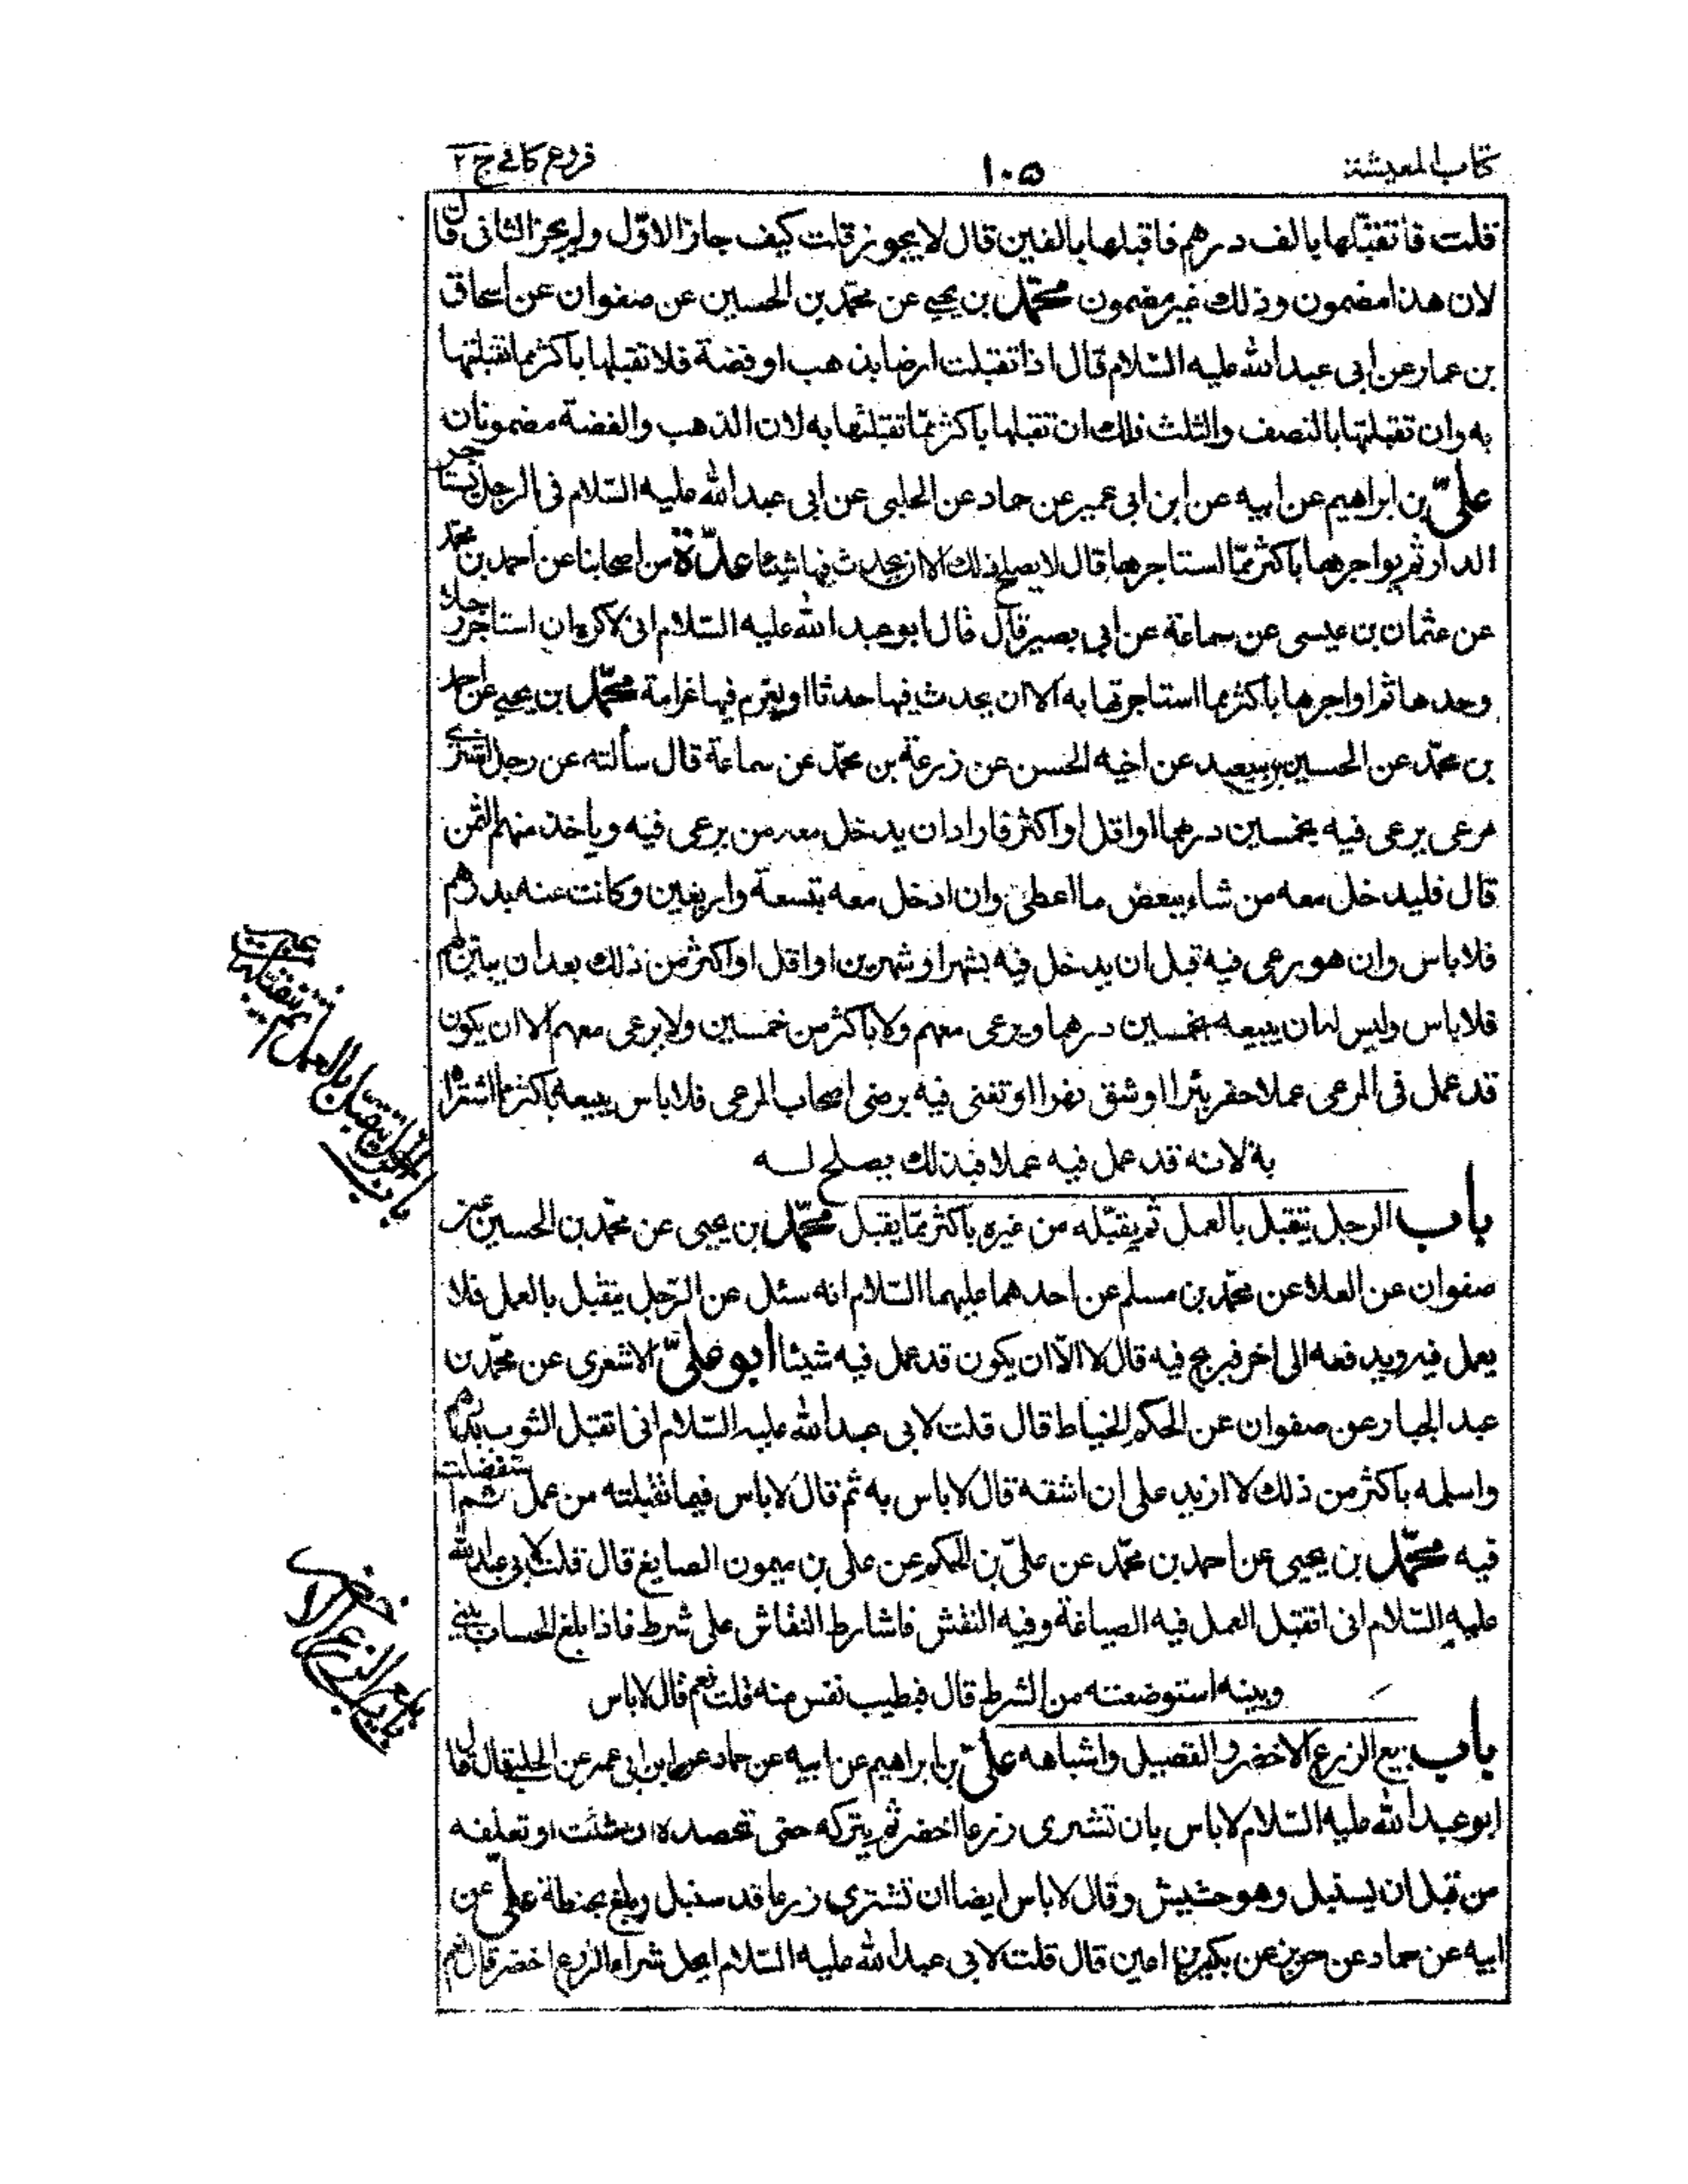 كتاب المعيشة
۱۰۵
فروع كافي ج ۲
قلت فاتقبّلها بالف درهم فاقبلها بالفين قال لا يجوز قلت كيف جاز الاوّل ولم يجز الثاني قال
لان هذا مضمون وذلك غير مضمون محمّد بن يحيى عن محمّد بن الحسين عن صفوان عن اسحاق
بن عمار عن ابي عبد الله عليه السّلام قال اذا تقبلت ارضا بذهب او فضة فلا تقبلها باكثر مما تقبلتها
به وان تقبلتها بالنصف والثلث فلك ان تقبلها باكثر ممّا تقبلتها به لان الذهب والفضة مضمونان
عليّ بن ابراهيم عن ابيه عن ابن ابي عمير عن حماد عن الحلبي عن ابي عبد الله عليه السّلام في الرجل يستاجر
الدار ثم يواجرها باكثر ممّا استاجرها قال لا يصلح ذلك الا ان يحدث فيها شيئا عدّة من اصحابنا عن احمد بن محمّد
عن عثمان بن عيسى عن سماعة عن ابي بصير قال قال ابو عبد الله عليه السّلام اني لاكره ان استاجر رحا
وحدها ثم اواجرها باكثر مما استاجرتها به الا ان يحدث فيها حدثا او يغرم فيها غرامة محمّد بن يحيى عن احمد
بن محمّد عن الحسين بن سعيد عن اخيه الحسن عن زرعة بن محمّد عن سماعة قال سألته عن رجل اشترى
مرعى يرعى فيه بخمسين درهما او اقل او اكثر فاراد ان يدخل معه من يرعى فيه وياخذ منهم الثمن
قال فليدخل معه من شاء ببعض ما اعطى وان ادخل معه بتسعة واربعين وكانت غنمه بدرهم
فلا باس وان هو رعى فيه قبل ان يدخل فيه بشهر او شهرين او اقل او اكثر من ذلك بعد ان يبين لهم
فلا باس وليس له ان يبيعه بخمسين درهما ويرعى معهم ولا باكثر من خمسين ولا يرعى معهم الا ان يكون
قد عمل في المرعى عملا حفر بئرا او شق نهرا او تغنى فيه برضى اصحاب المرعى فلا باس ببيعه باكثر مما اشتراه
به لانه قد عمل فيه عملا فبذلك يصلح له
باب الرجل يتقبل بالعمل ثم يقبّله من غيره باكثر ممّا يقبل محمّد بن يحيى عن محمّد بن الحسين عن
صفوان عن العلا عن محمّد بن مسلم عن احدهما عليهما السّلام انه سئل عن الرّجل يتقبل بالعمل فلا
يعمل فيه ويدفعه الى اخر فيربح فيه قال لا الاّ ان يكون قد عمل فيه شيئا ابو عليّ الاشعري عن محمّد بن
عبد الجبار عن صفوان عن الحكم الخياط قال قلت لابي عبد الله عليه السّلام اني اتقبل الثوب بدرهم
واسلمه باكثر من ذلك لا ازيد على ان اشقه قال لا باس به ثم قال لا باس فيما تقبلته من عمل ثم استفضلت
فيه محمّد بن يحيى عن احمد بن محمّد عن عليّ بن الحكم عن علي بن ميمون الصايغ قال قلت لابي عبد الله
عليه السّلام اني اتقبل العمل فيه الصياغة وفيه النقش فاشارط النقاش على شرط فاذا بلغ الحساب بيني
وبينه استوضعته من الشرط قال فبطيب نفس منه قلت نعم قال لا باس
باب بيع الزرع الاخضر والقصيل واشباهه عليّ بن ابراهيم عن ابيه عن حماد عن ابن ابي عمير عن الحلبي قال قال
ابو عبد الله عليه السّلام لا باس بان تشترى زرعا اخضر ثم يتركه حتى تحصده ان شئت او تعلفه
من قبل ان يسنبل وهو حشيش وقال لا باس ايضا ان تشتري زرعا قد سنبل وبلغ بحنطة علي عن
ابيه عن حماد عن حريز عن بكير بن اعين قال قلت لابي عبد الله عليه السّلام ايحل شراء الزرع اخضر قال نعم
باب
بالعمل ثم
باب بيع الزرع الاخضر